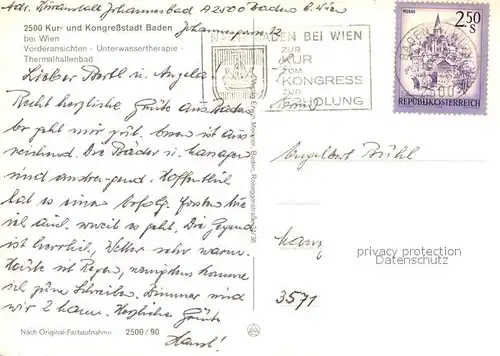 Adr. Kuranstalt Johannesbad A2500 Baden b. Wien
Johannesgasse 12
2500 Kur- und Kongreßstadt Baden
bei Wien
Vorderansichten · Unterwassertherapie ·
Thermalhallenbad
Lieber Bertl u. Angela
Recht herzliche Grüße aus Baden
Es geht mir gut. Essen ist aus-
reichend. Die Bäder u. Massagen
sind anstrengend. Hoffentlich
hat es einen Erfolg.
sie auch, soweit es geht. Die Gegend
ist herrlich, Wetter sehr warm.
Heute ist Regen, wenigstens komme
ich zum Schreiben. Zimmer sind
wir 2 Herzliche Grüße
Hansl!
Nach Original-Farbaufnahme 2500/90
Verlag Erich Baden,
BADEN BEI WIEN
ZUR
KUR
ZUM
KONGRESS
ZUR
ERHOLUNG
MURAU
2.50
S
REPUBLIK ÖSTERREICH
2500
Engelbert Brühl
3571
privacy protection
watermark